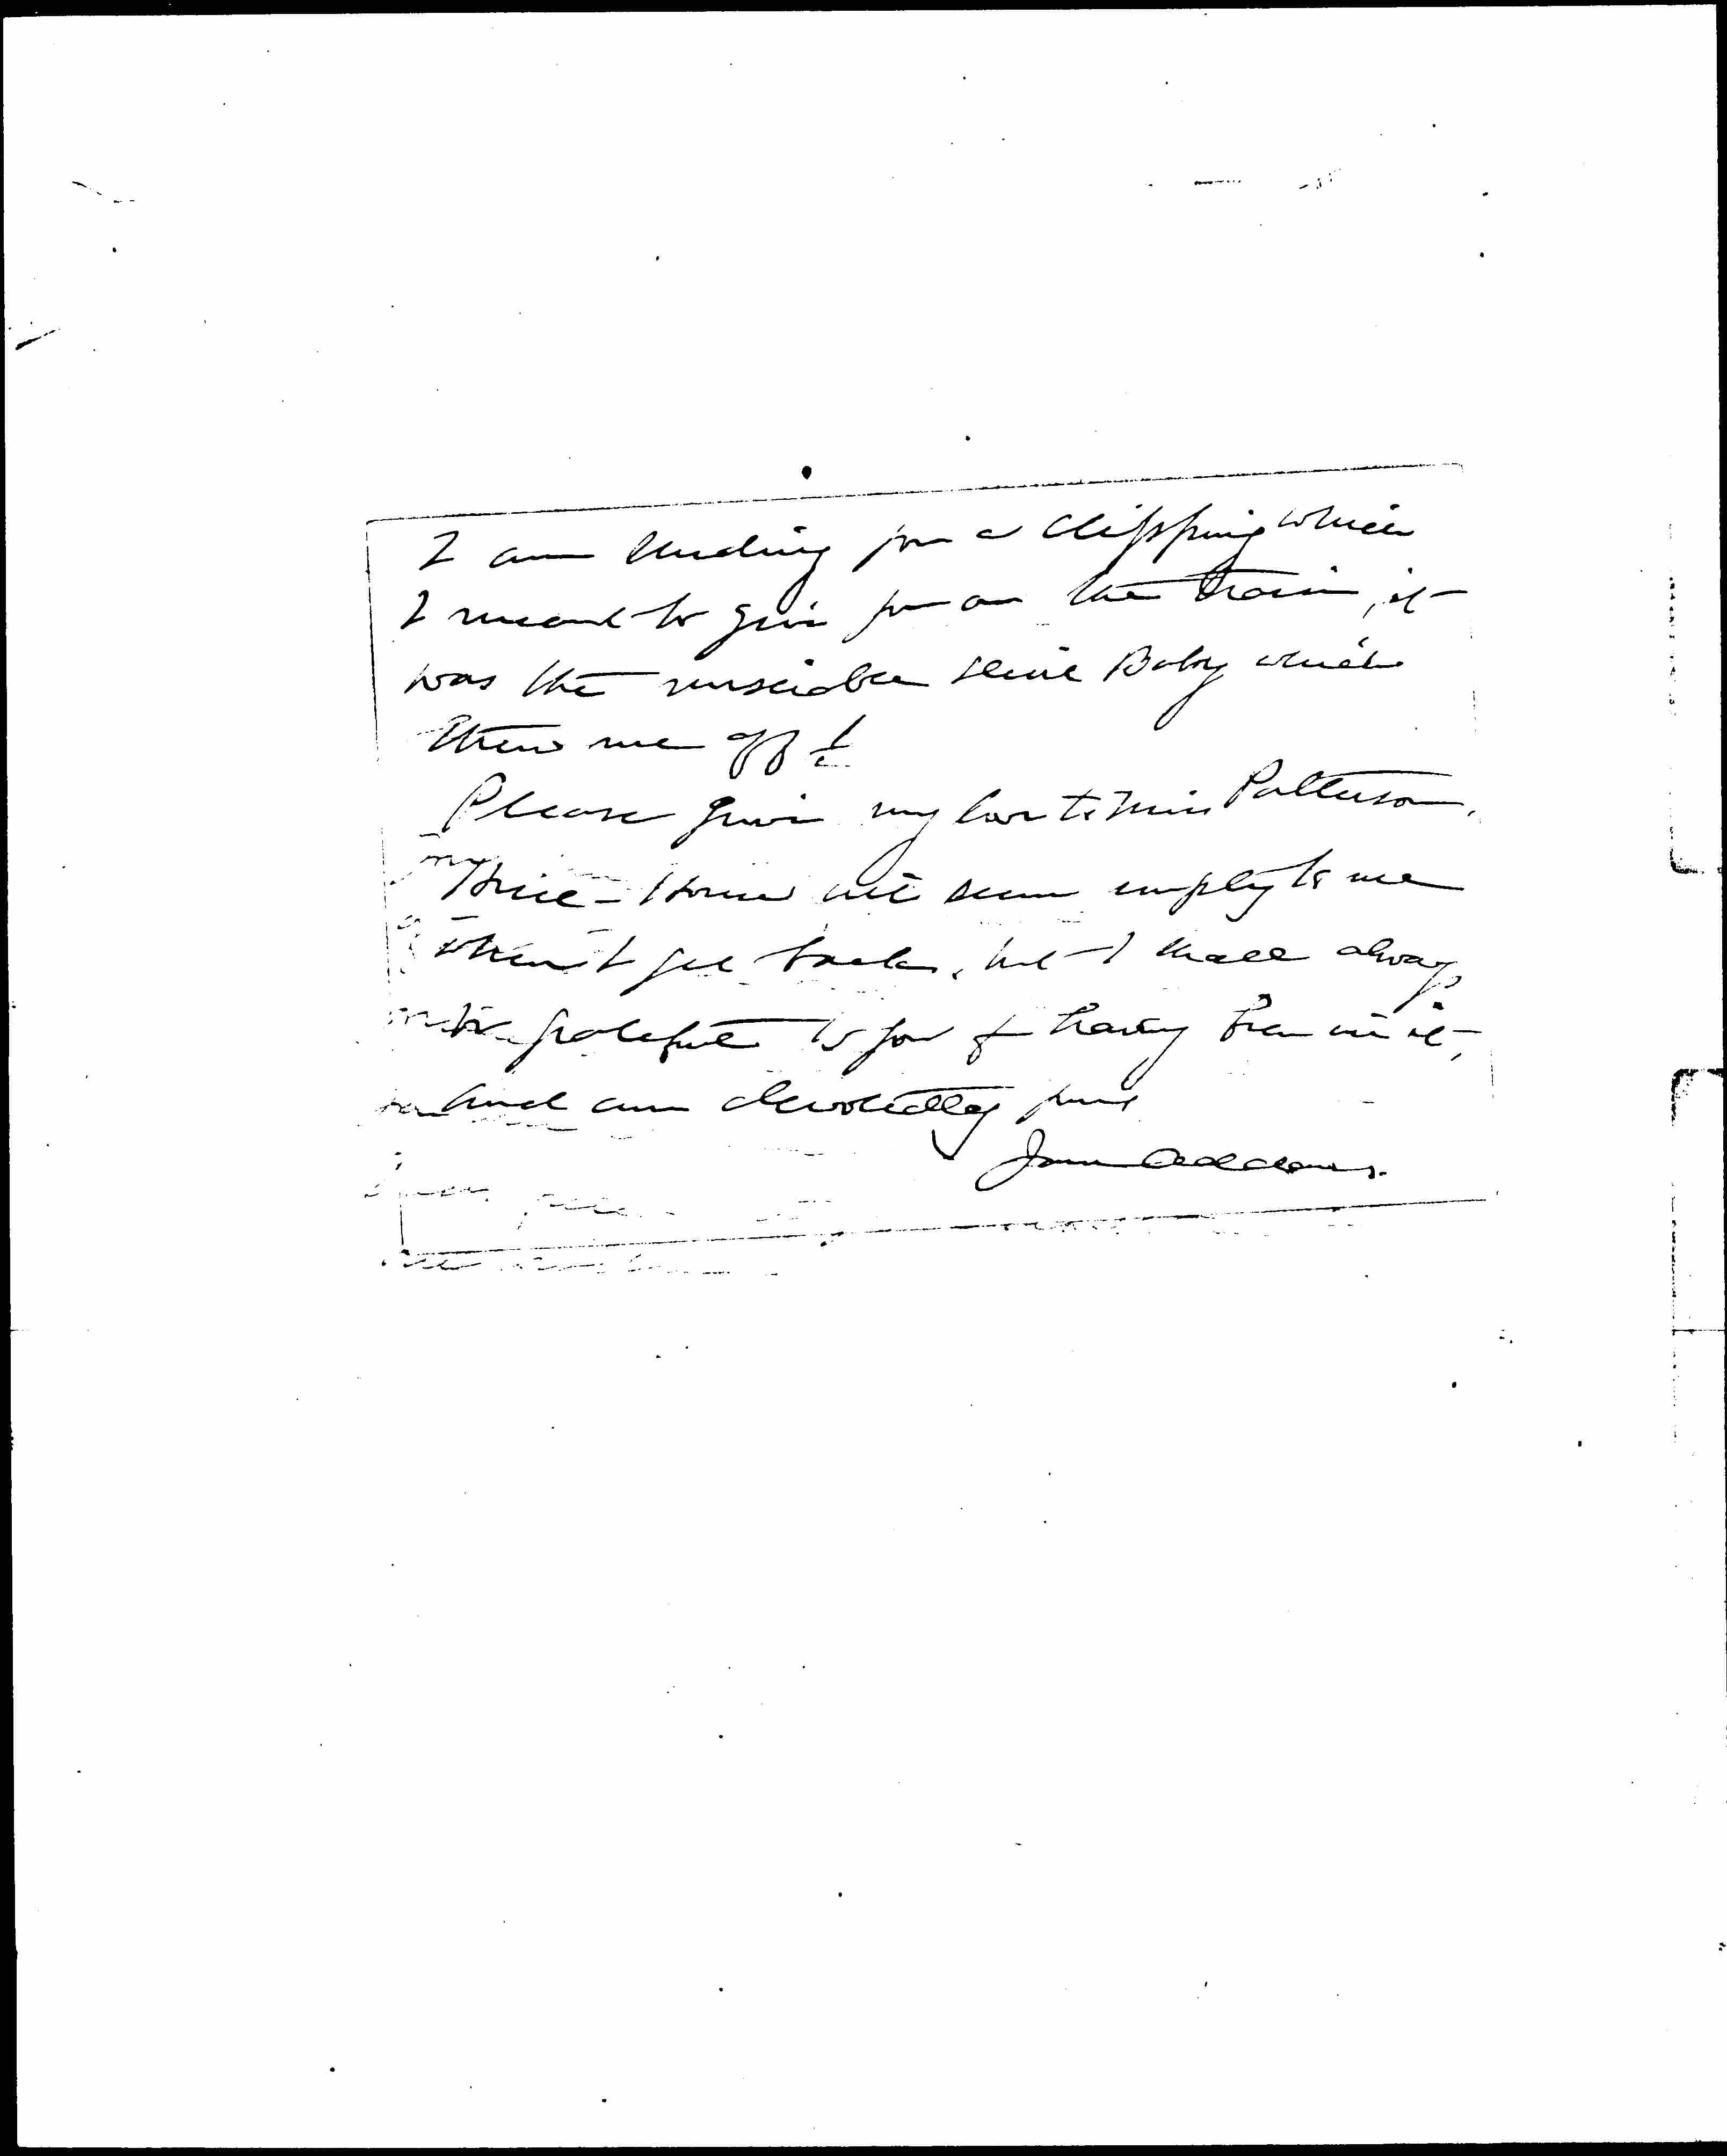 I am sending you a clipping which
I meant to give you on the train, it
was the miserable little Baby which
threw me off!
Please give my love to Miss Patterson.
Hull-House will seem empty to me
when I get back, but I shall always
be grateful to you for having been in it,
and am devotedly yours
Jane Addams.